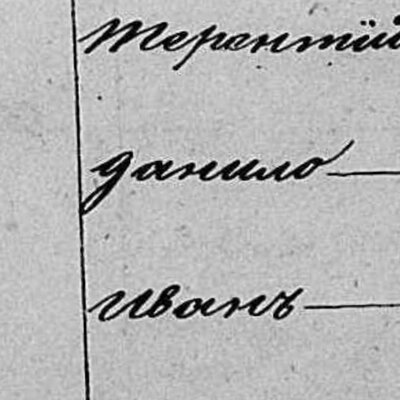 Терентій
данило
Иванъ